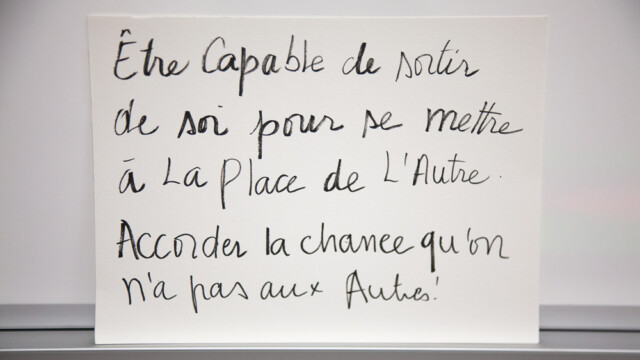 Être Capable de sortir
de soi pour se mettre
à La Place de L'Autre.
Accorder la chance qu'on
n'a pas aux Autres!